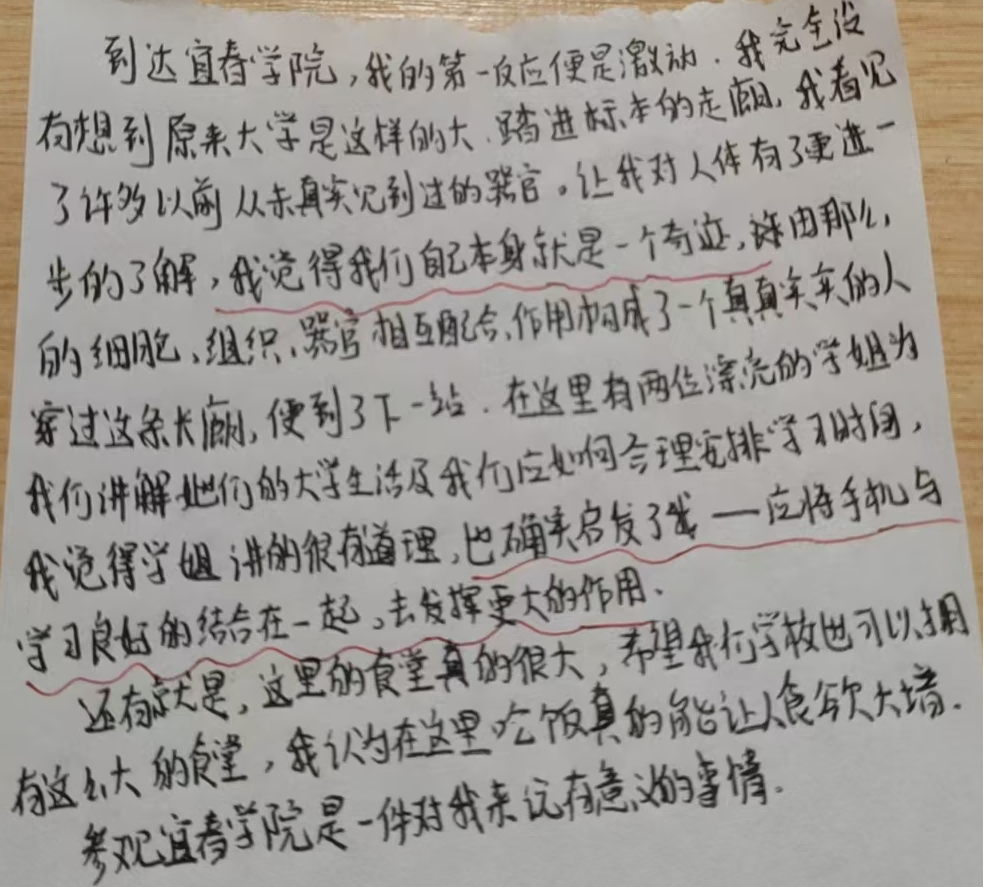 到达宜春学院,我的第一反应便是激动.我完全没
有想到原来大学是这样的大.踏进标本的走廊,我看见
了许多以前从未真实见到过的器官。让我对人体有了更进一
步的了解,我觉得我们自己本身就是一个奇迹,由那么
的细胞、组织、器官相互配合,作用构成了一个真真实实的人
穿过这条长廊,便到了下一站.在这里有两位漂亮的学姐为
我们讲解她们的大学生活及我们应如何合理安排学习时间,
我觉得学姐讲的很有道理,也确实启发了我——应将手机与
学习良好的结合在一起,去发挥更大的作用.
还有就是,这里的食堂真的很大,希望我们学校也可以拥
有这么大的食堂,我认为在这里吃饭真的能让人食欲大增.
参观宜春学院是一件对我来说有意义的事情.